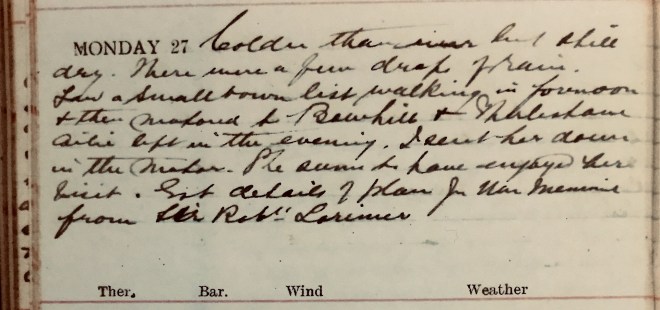 MONDAY 27 Colder than ever but still
dry. There were a few drops of rain.
a small town walking in forenoon
& then motored to Bowhill &
left in the evening. I sent her down
in the Motor. She seems to have enjoyed her
visit. Got details of plan for War Memorial
from Sir Robt. Lorimer
Ther. Bar. Wind Weather